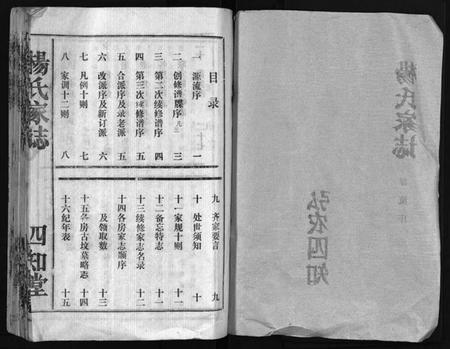 楊氏家誌
弘农四知
目录
一 源流序 一
二 创修谱牒序 三
三 第二次续修谱序 四
四 第三次续修谱序 五
五 合派序及录老派 五
六 改派序及新订派 六
七 凡例十则 七
八 家训十二则 八
九 齐家要言 九
十 处世须知 十
十一家规十则 十一
十二备忘特志 十一
十三续修家志名录 十二
十四各房家志顺序
及领取数 十三
十五各房古坟墓略志 十四
十六纪年表 十五
楊氏家誌
四知堂